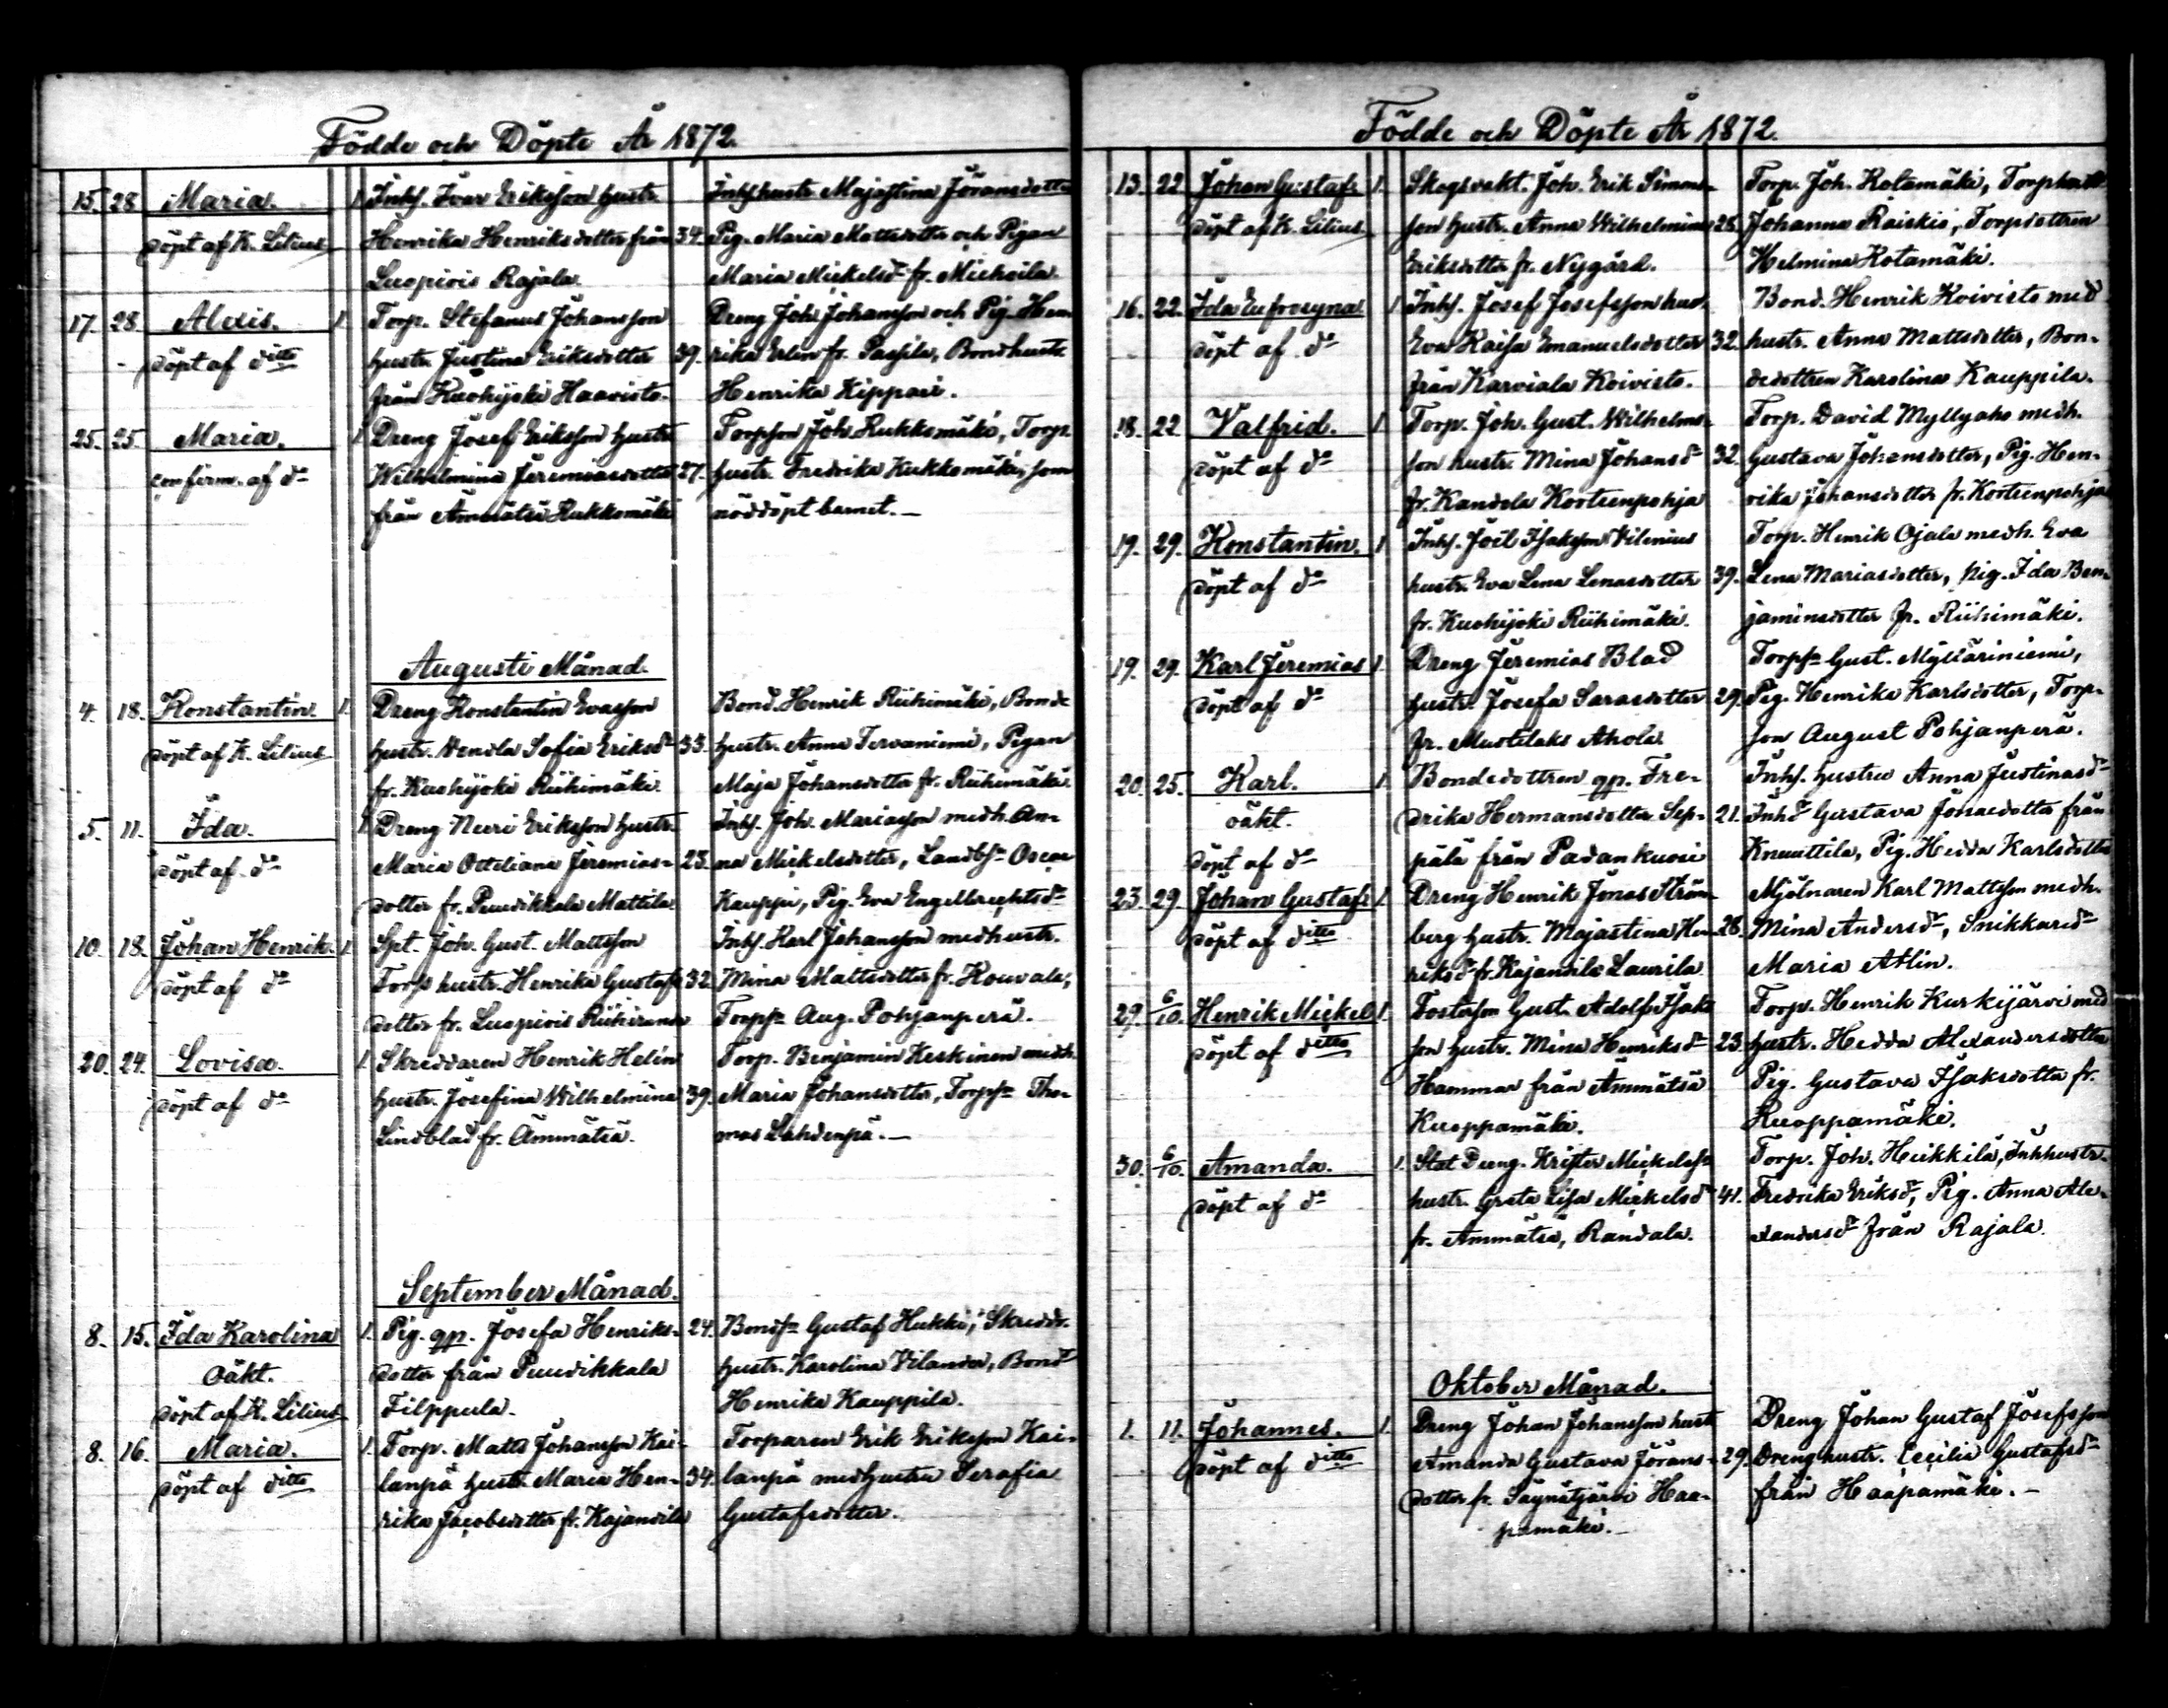 Födde och Döpte År 1872.
15. 28 Maria. 1 Inhs. Ivar Eriksson hustr. Inhs. hustr. Majastina Göransdotter
döpt af K. Lilius Henrika Henriksdotter från 34. Pig. Maria Mattsdotter och Pigan
Luopiois Rajala. Maria Mickelsd. fr. Mickoila
17. 28. Alexis. 1. Torp. Stefanus Johansson Dreng Joh. Johansson och Pig. Hen-
döpt af ditto hustr. Justina Eriksdotter 39. rika Erlin fr. Paspila, Bondhustr.
från Kuohijoki Haavisto. Henrika Kippari.
25. 25. Maria. 1. Dreng Josef Eriksson hustr. Torpson Joh. Kukkomäki, Torp.
confirm. af do Wilhelmina Jeremiasdotter 27. hustr. Fredrika Kukkomäki, som
från Ämmätsä Kukkomäki nöddöpt barnet. —
Augusti Månad.
4. 18. Konstantin. 1. Dreng Konstantin Evasson Bond. Henrik Riihimäki, Bond-
döpt af K. Lilius hustr. Vendla Sofia Eriksd. 33. hustr. Anna Tervaniemi, Pigan
fr. Kuohijoki Riihimäki. Maja Johansdotter fr. Riihimäki.
5. 11. Ida. 1. Dreng Eriksson hustr. Inhs. Joh. Mariasson medh. An-
döpt af do Maria Otteliana Jeremias- 23. na Mickelsdotter, Landbs. Oscar
dotter fr. Puudikkala Mattila. Kauppi, Pig. Eva Engelbrechtsd.
10. 18. Johan Henrik. 1. Spt. Joh. Gust. Mattsson Inhs. Karl Johansson medhustr.
döpt af do Torps hustr. Henrika Gustafs 32. Mina Mattsdotter fr. Kouvala,
dotter fr. Luopiois Riihiranta Torps. Aug. Pohjanperä.
20. 24. Lovisa. 1. Skreddaren Henrik Helin Torp. Benjamin Keskinen medh.
döpt af do hustr. Josefina Wilhelmina 39. Maria Johansdotter, Torps. Tho-
Lindblad fr. Ämmätsä. mas Lahdenpä. —
September Månad.
8. 15. Ida Karolina 1. Pig. qp. Josefa Henriks- 24. Bonds. Gustaf Hukki, Skredd.
Oäkt. dotter från Puudikkala hustr. Karolina Vilander, Bond
döpt af K. Lilius Filppula. Henrika Kauppila.
8. 16. Maria. 1. Torp. Matts Johansson Kai- Torparen Erik Eriksson Kai-
döpt af ditto lanpä hustr. Maria Hen- 34. lanpä medhustru Serafia
rika Jacobsdotter fr. Kajandila Gustafsdotter.
Födde och Döpte År 1872.
13. 22 Johan Gustaf. 1. Skogsvakt. Joh. Erik Simons- Torp. Joh. Kotamäki, Torphustr.
döpt af K. Lilius son hustr. Anna Wilhelmina 28. Johanna Raiskio, Torpdottren
Eriksdotter fr. Nygård. Helmina Kotamäki.
16. 22. Ida Eufrosyna 1 Inhs. Josef Josefsson hus. Bond. Henrik Koivisto med
döpt af do Eva Kaisa Emanuelsdotter 32. hustr. Anna Mattsdotter, Bon-
från Karviala Koivisto. dedottren Karolina Kauppila.
18. 22 Valfrid. 1. Torp. Joh. Gust. Wilhelms- Torp. David Myllyaho medh.
döpt af do son hustr. Mina Johansd. 32. Gustava Johansdotter, Pig. Hen-
fr. Kandola Kortteenpohja rika Johansdotter fr. Kortteenpohja
19. 29. Konstantin. 1 Inhs. Joel Isaksson Vilenius Torp. Henrik Ojala medh. Eva
döpt af do hustr. Eva Lena Lenasdotter 39. Lena Mariasdotter, Pig. Ida Ben-
fr. Kuohijoki Riihimäki. jaminsdotter fr. Riihimäki.
19. 29. Karl Jeremias 1. Dreng Jeremias Blad Torps. Gust. Mylläriniemi,
döpt af do hustr. Josefa Sarasdotter 29. Pig. Henrika Karlsdotter, Torp-
fr. Mustilaks Ahola. son August Pohjanperä.
20. 25. Karl. 1. Bondedottren qp. Fre- Inhs. hustru Anna Justinasd.
oäkt. drika Hermansdotter Sep- 21. Inhs. Gustava Jonaedotter från
döpt af do pälä från Padankuosi Knuuttila, Pig. Hedda Karlsdotter
23. 29. Johan Gustaf. 1. Dreng Henrik Jonas Ström- Mjölnaren Karl Mattsson medh.
döpt af ditto berg hustr. Majastina Hen- 28. Mina Andersd., Snikkared.
riksd. fr. Kajandila Laurila Maria Ahlin.
29. 6/10. Henrik Mickel 1. Fosterson Gust. Adolf Isaks Torp. Henrik Kurkijärvi med
döpt af ditto son hustr. Mina Henriksd. 23. hustr. Hedda Alexandersdotter
Hammar från Ammätsä Pig. Gustava Isaksdotter fr.
Kuoppamäki. Kuoppamäki.
30. 6/10. Amanda. 1. Stat Dreng. Krister Mickelss. Torp. Joh. Heikkilä, Inhhustr.
döpt af do hustr. Greta Lisa Mickelsd. 41. Fredrika Eriksd., Pig. Anna Ale-
fr. Ammätsä, Randala. xandersd. från Rajala.
Oktober Månad.
1. 11. Johannes. 1. Dreng Johan Johansson hustr. Dreng Johan Gustaf Josefsson
döpt af ditto Amanda Gustava Görans- 29. Dreng hustr. Cecilia Gustafsd.
dotter fr. Säynätjärvi Haa- från Haapamäki. —
pamäki. —